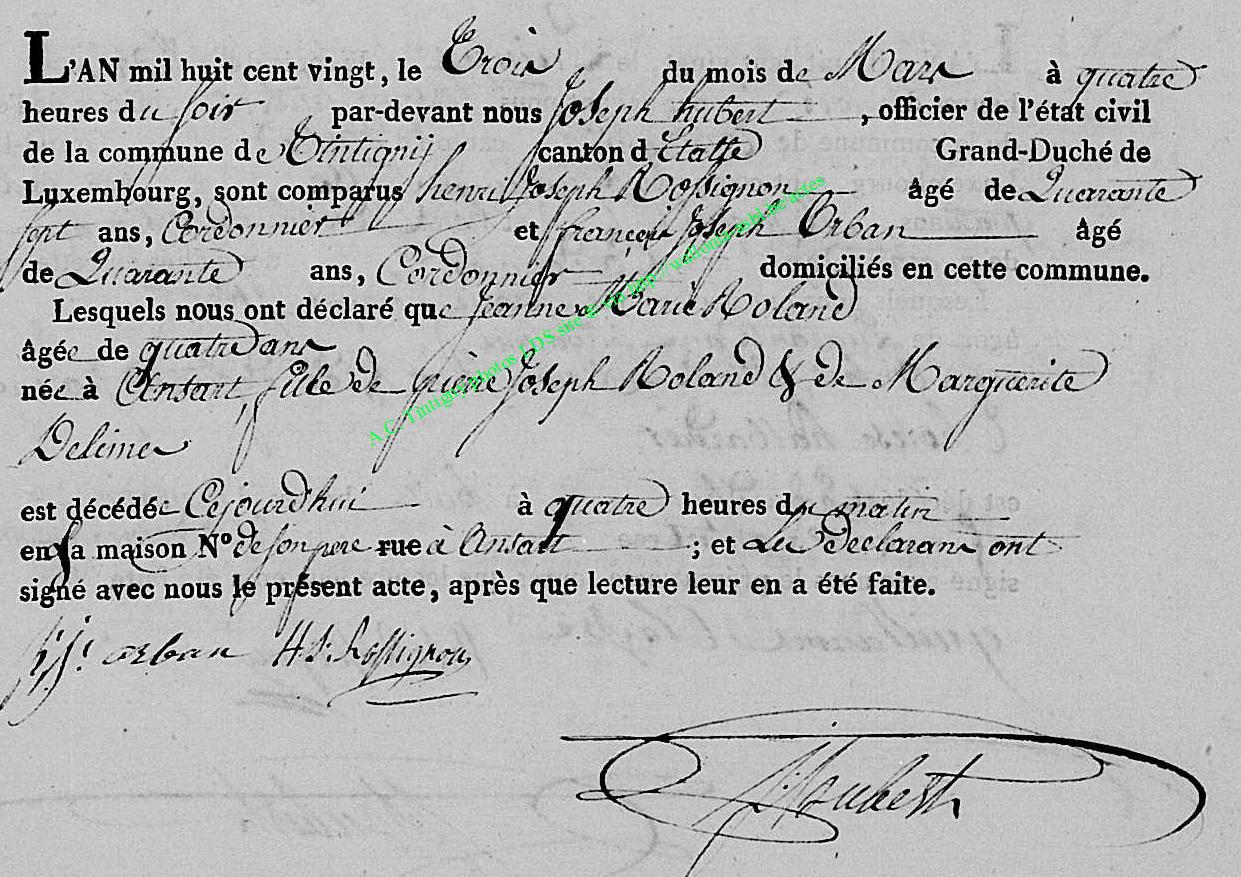 L'AN mil huit cent vingt, le Trois du mois de Mars à quatre
heures du soir par-devant nous Joseph hubert, officier de l'état civil
de la commune de Tintigny canton d'Etalle Grand-Duché de
Luxembourg, sont comparus henri Joseph Rossignon âgé de Quarante
sept ans, Cordonnier et françois Joseph Orban âgé
de Quarante ans, Cordonnier domiciliés en cette commune.
Lesquels nous ont déclaré que Jeanne Marie Roland
âgée de quatre ans
née à Ansart fille de Joseph Roland & de Marguerite
Delime
est décédée Cejourd'hui à quatre heures du matin
en la maison N° de son pere rue à Ansart ; et Les declarans ont
signé avec nous le présent acte, après que lecture leur en a été faite.
orban H J: Rossignon
J: houbert
A.C. Tintigny photos LDS site g-lux http://wallonia.mbl.be actes